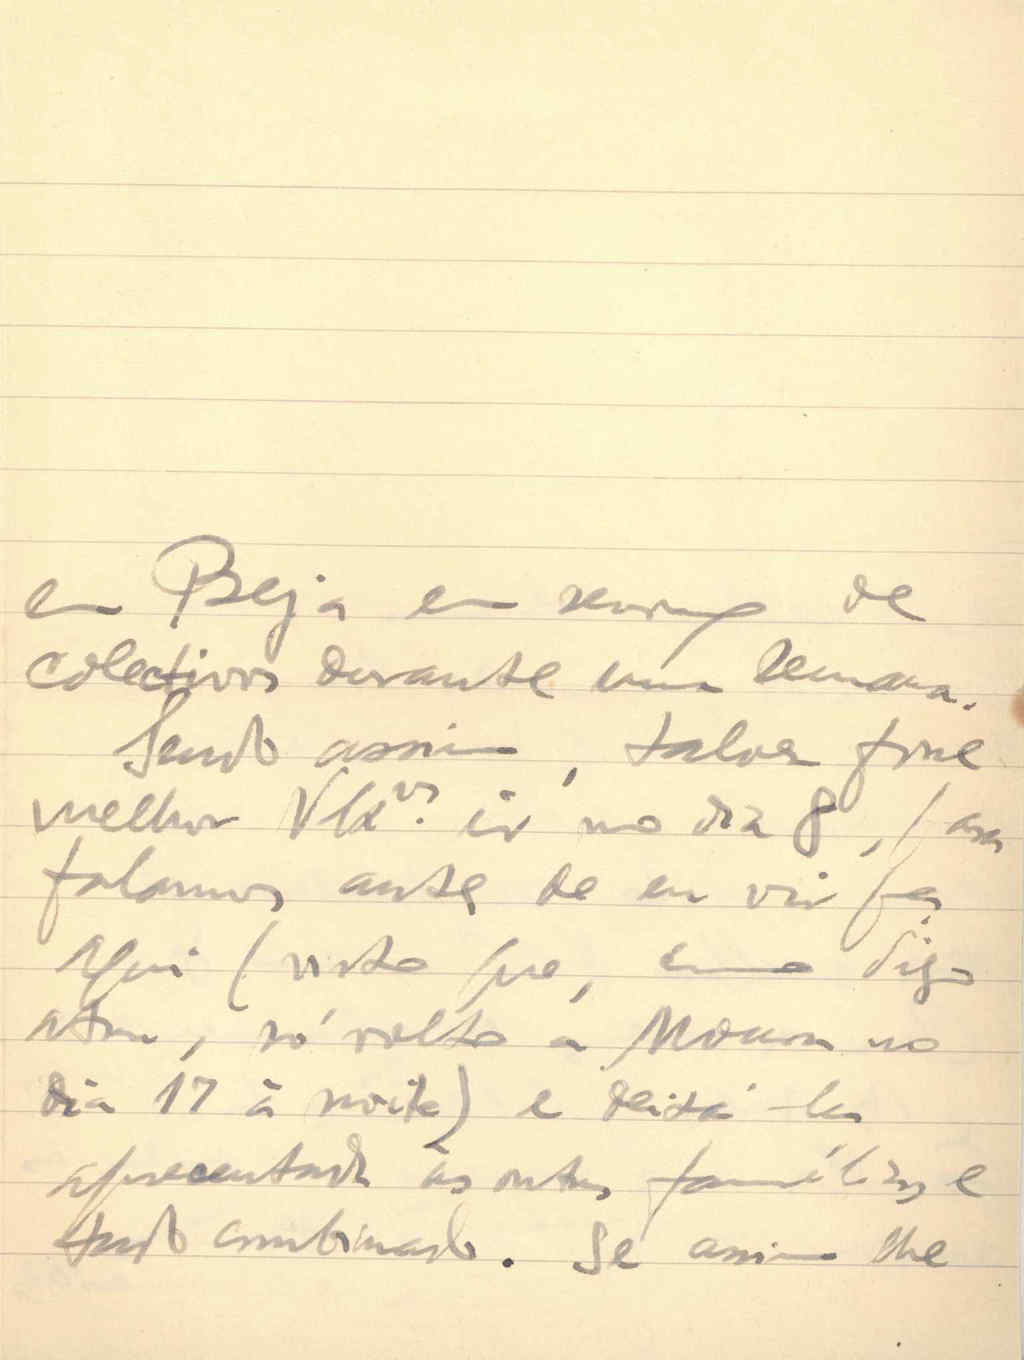 em Beja em serviço de
colectivos durante uma semana.
Sendo assim, talvez fosse
melhor V. Ex.ª ir no dia 8, para
falarmos antes de eu vir para
aqui (visto que, como digo
atrás, só volto a Moura no
dia 17 à noite) e deixá-la
apresentada às outras famílias e
tudo combinado. Se assim lhe